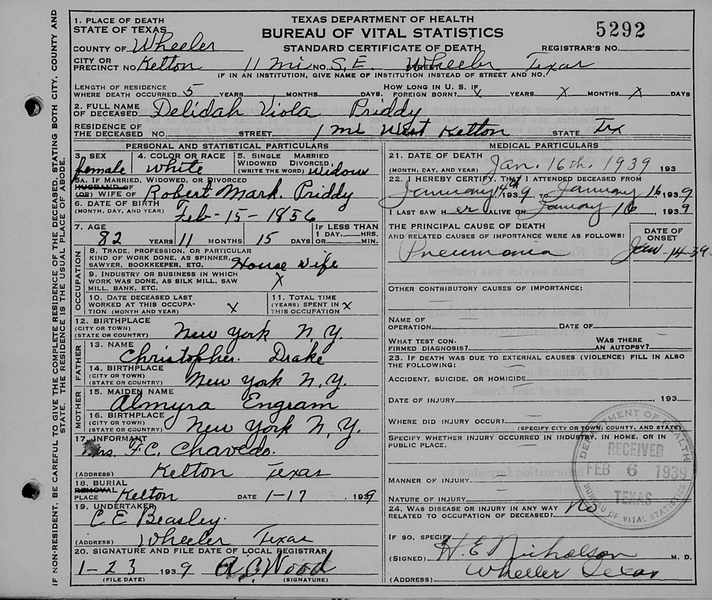 TEXAS DEPARTMENT OF HEALTH
BUREAU OF VITAL STATISTICS
STANDARD CERTIFICATE OF DEATH
5292
REGISTRAR'S NO.
1. PLACE OF DEATH
STATE OF TEXAS
COUNTY OF Wheeler
CITY OR PRECINCT NO. Kelton 11 mi NO. S.E. Wheeler Texas
IF IN AN INSTITUTION, GIVE NAME OF INSTITUTION INSTEAD OF STREET AND NO.
LENGTH OF RESIDENCE WHERE DEATH OCCURRED 5 YEARS MONTHS DAYS HOW LONG IN U. S. IF FOREIGN BORN? X YEARS X MONTHS X DAYS
2. FULL NAME OF DECEASED Delidah Viola Priddy
RESIDENCE OF THE DECEASED NO. STREET 1 mi West Kelton STATE Tex
PERSONAL AND STATISTICAL PARTICULARS
3. SEX female 4. COLOR OR RACE White 5. SINGLE MARRIED WIDOWED DIVORCED, (WRITE THE WORD) widow
5A. IF MARRIED, WIDOWED, OR DIVORCED
HUSBAND OF (OR) WIFE OF Robert Mark. Priddy
6. DATE OF BIRTH (MONTH, DAY, AND YEAR) Feb-15-1856
7. AGE 82 YEARS 11 MONTHS 15 DAYS IF LESS THAN 1 DAY HRS. MIN.
OCCUPATION
8. TRADE, PROFESSION, OR PARTICULAR KIND OF WORK DONE, AS SPINNER, SAWYER, BOOKKEEPER, ETC. House Wife
9. INDUSTRY OR BUSINESS IN WHICH WORK WAS DONE, AS SILK MILL, SAW MILL, BANK, ETC. X
10. DATE DECEASED LAST WORKED AT THIS OCCUPATION (MONTH AND YEAR) X
11. TOTAL TIME (YEARS) SPENT IN THIS OCCUPATION X
12. BIRTHPLACE (CITY OR TOWN) (STATE OR COUNTRY) New York N.Y.
FATHER
13. NAME Christopher Drake
14. BIRTHPLACE (CITY OR TOWN) (STATE OR COUNTRY) New York N.Y.
MOTHER
15. MAIDEN NAME Almyra Engram
16. BIRTHPLACE (CITY OR TOWN) (STATE OR COUNTRY) New York N.Y.
17. INFORMANT Mrs. F.C. Chavedo.
(ADDRESS) Kelton Texas
18. BURIAL REMOVAL PLACE Kelton DATE 1-17 1939
19. UNDERTAKER C E Beasley
(ADDRESS) Wheeler Texas
20. SIGNATURE AND FILE DATE OF LOCAL REGISTRAR
1-23 1939 Wood
(FILE DATE) (SIGNATURE)
MEDICAL PARTICULARS
21. DATE OF DEATH (MONTH, DAY, AND YEAR) Jan. 16th. 1939 193
22. I HEREBY CERTIFY THAT I ATTENDED DECEASED FROM
January 14th 9 TO January 16 1939
I LAST SAW H er ALIVE ON January 16 1939
THE PRINCIPAL CAUSE OF DEATH AND RELATED CAUSES OF IMPORTANCE WERE AS FOLLOWS:
DATE OF ONSET
Pneumonia Jan-14-39
OTHER CONTRIBUTORY CAUSES OF IMPORTANCE:
NAME OF OPERATION DATE OF
WHAT TEST CONFIRMED DIAGNOSIS? WAS THERE AN AUTOPSY?
23. IF DEATH WAS DUE TO EXTERNAL CAUSES (VIOLENCE) FILL IN ALSO THE FOLLOWING:
ACCIDENT, SUICIDE, OR HOMICIDE
DATE OF INJURY 193
WHERE DID INJURY OCCUR?
(SPECIFY CITY OR TOWN, COUNTY, AND STATE)
SPECIFY WHETHER INJURY OCCURRED IN INDUSTRY, IN HOME, OR IN PUBLIC PLACE.
MANNER OF INJURY
NATURE OF INJURY
24. WAS DISEASE OR INJURY IN ANY WAY RELATED TO OCCUPATION OF DECEASED? No
IF SO, SPECIFY
(SIGNED) H. E. Nicholson M. D.
(ADDRESS) Wheeler Texas
DEPARTMENT OF HEALTH
RECEIVED
FEB 6 1939
TEXAS
BUREAU OF VITAL STATISTICS
IF NON-RESIDENT, BE CAREFUL TO GIVE THE COMPLETE RESIDENCE OF THE DECEASED, STATING BOTH CITY, COUNTY AND STATE. THE RESIDENCE IS THE USUAL PLACE OF ABODE.